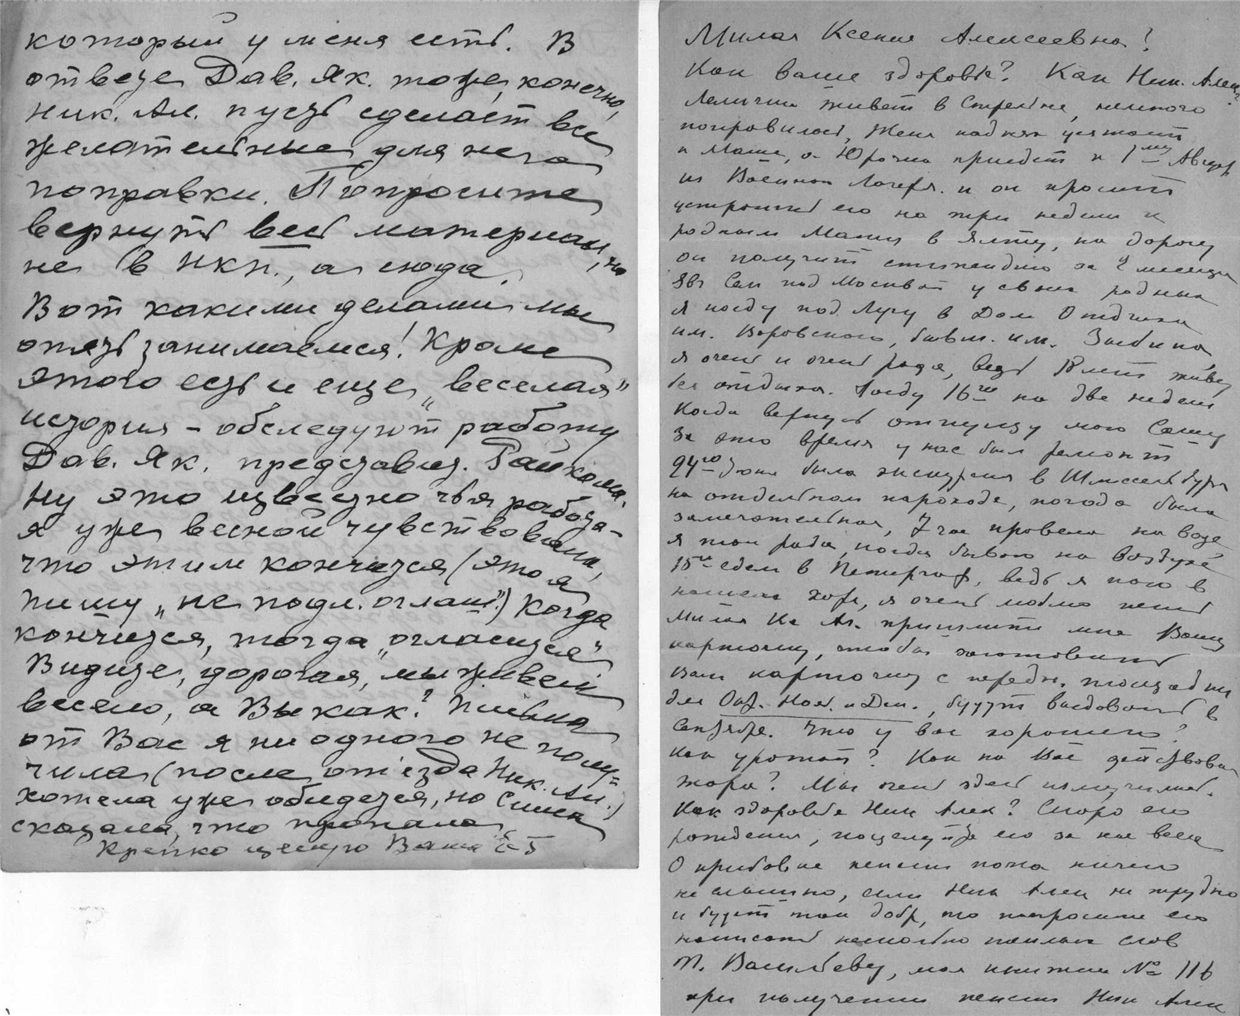 который у меня есть. В
ответе Дав. Як. тоже, конечно,
Ник. Ал. пусть сделает все
желательные для него
поправки. Попросите
вернуть весь материал, но
не в НКП., а сюда.
Вот какими делами мы
опять занимаемся! Кроме
этого есть и еще „веселая"
история – обследуют работу
Дав. Як. представит. Райкома.
Ну это известно чья работа –
я уже весной чувствовала,
что этим кончится (это я
пишу „не подл. оглаш.") когда
кончится, тогда „огласится"
Видите, дорогая, мы живем
весело, а Вы как? Письма
от Вас я ни одного не полу=
чила (после отъезда Ник. Ал.)
хотела уже обидеться, но Сима
сказала, что пропало
Крепко целую Ваша
Милая Ксения Алексеевна!
Как ваше здоровье? Как Ник. Алек?
Лелички живет в Стрельне, немного
поправилась, Женя на днях уезжает
к Маше, а Юрочка приедет к 1му Августа
из Военного Лагеря. и он просит
устроить его на три недели к
родным Маши в Ялту, на дорогу
он получит стипендию за 2 месяца
под Москвой у своих родных
Я поеду под Лугу в Дом Отдыха
им. Воровского, бывш. им. Зубкина,
я очень и очень рада, ведь лет живу
без отдыха. Поеду 16го на две недели
Когда вернусь отпущу мою Сашу
За это время у нас был ремонт
24го Июня была экскурсия в Шлиссельбург
на отдельном пароходе, погода была
замечательная, 7 час провели на воде
я так рада, когда бываю на воздухе
15го едем в Петергоф, ведь я пою в
нашем хоре, я очень люблю петь
Милая Кс Ал. пришлите мне Вашу
карточку, чтобы заготовить
Вам карточку с передн. площадки
для Окт. Ноя. и Дек., будут выдавать в
Сентябре. Что у вас хорошего?
Как урожай? Как на Вас действовала
жара? Мы очень здесь измучились.
Как здоровье Ник Алек? Скоро его
рождение, поцелуйте его за нас всех
О прибавке пенсии пока ничего
не слышно, если Ник Алек не трудно
и будет так добр, то попросите его
написать несколько теплых слов
Васильеву, моя книжка № 116
при получении пенсии Ник Алек